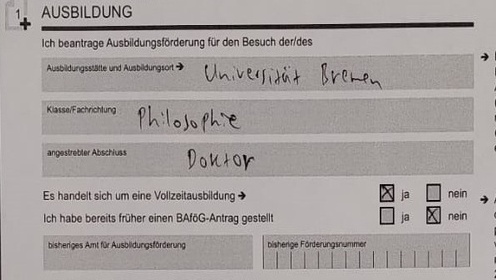 1 AUSBILDUNG
Ich beantrage Ausbildungsförderung für den Besuch der/des
Ausbildungsstätte und Ausbildungsort → Universität Bremen
Klasse/Fachrichtung Philosophie
angestrebter Abschluss Doktor
Es handelt sich um eine Vollzeitausbildung → ☒ ja ☐ nein
Ich habe bereits früher einen BAföG-Antrag gestellt ☐ ja ☒ nein
bisheriges Amt für Ausbildungsförderung bisherige Förderungsnummer